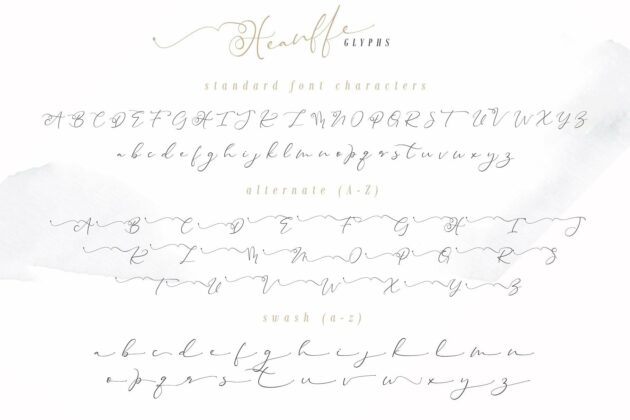 Heanffe GLYPHS
standard font characters
A B C D E F G H I J K L M N O P Q R S T U V W X Y Z
a b c d e f g h i j k l m n o p q r s t u v w x y z
alternate (A-Z)
A B C D E F G H I J
K L M N O P Q R S
T U V W X Y Z
swash (a-z)
a b c d e f g h i j k l m n
o p q r s t u v w x y z